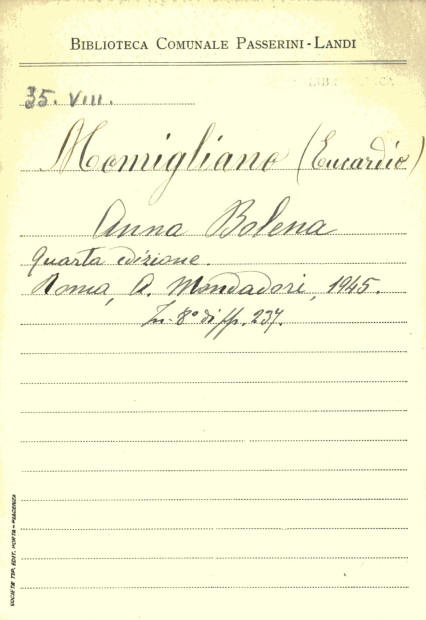 BIBLIOTECA COMUNALE PASSERINI-LANDI
35. VIII.
Momigliano (Eucardio)
Anna Bolena
Quarta edizione.
Roma, A. Mondadori, 1945.
In-8° di pp. 237.
SOCIETÀ TIP. EDIT. PORTA - PIACENZA